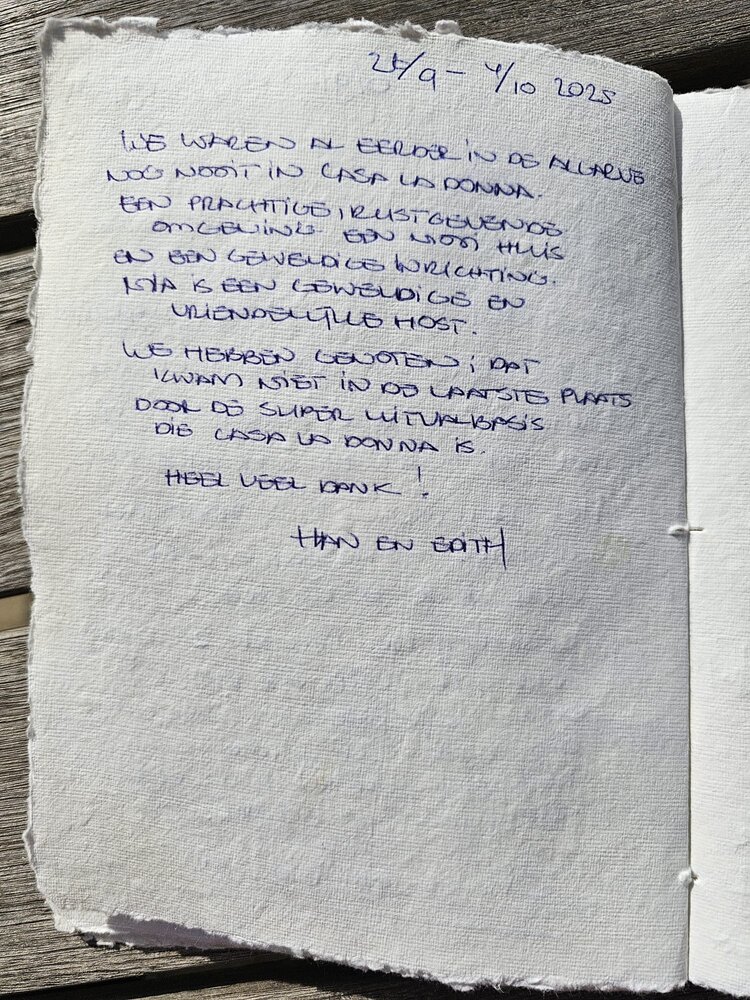 /9 – 4/10 2025
WE WAREN AL EERDER IN DE ALGARVE
NOG NOOIT IN CASA LA DONNA.
EEN PRACHTIGE, RUSTGEVENDE
OMGEVING. EEN MOOI HUIS
EN EEN GEWELDIGE INRICHTING.
IS EEN GEWELDIGE EN
VRIENDELIJKE HOST.
WE HEBBEN GENOTEN; DAT
KWAM NIET IN DE LAATSTE PLAATS
DOOR DE SUPER UITVALBASIS
DIE CASA LA DONNA IS.
HEEL VEEL DANK!
HAN EN EDITH